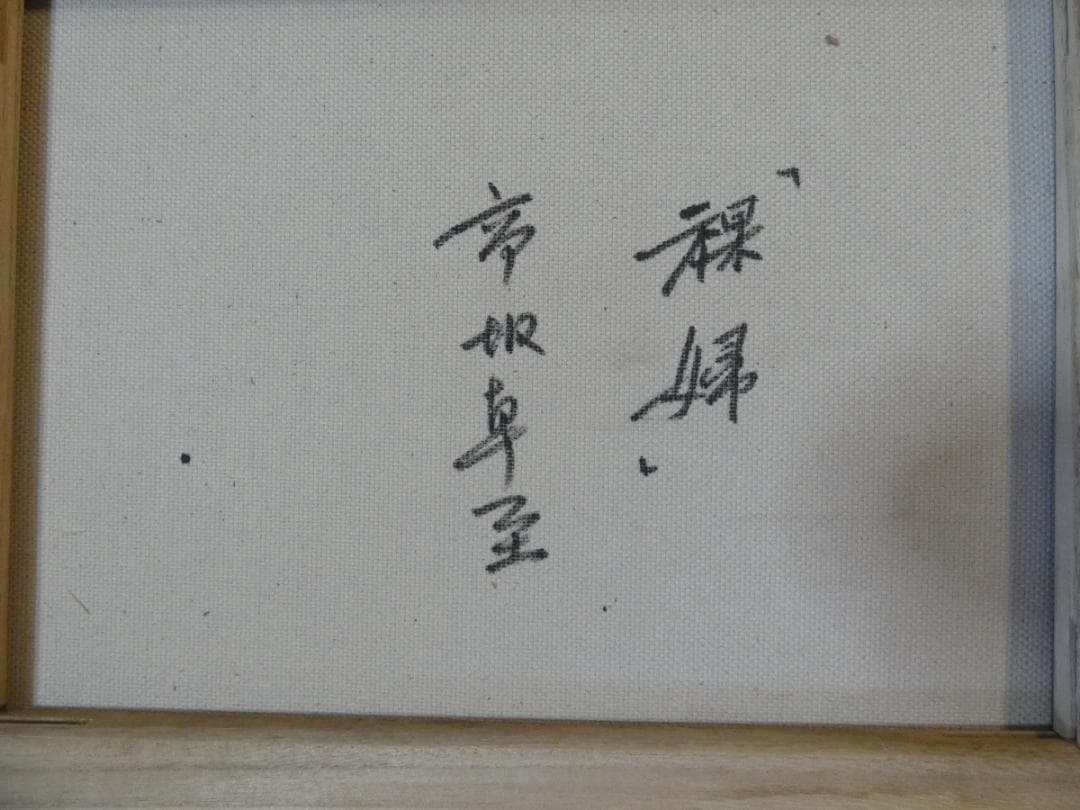 「裸婦」
市坂卓至